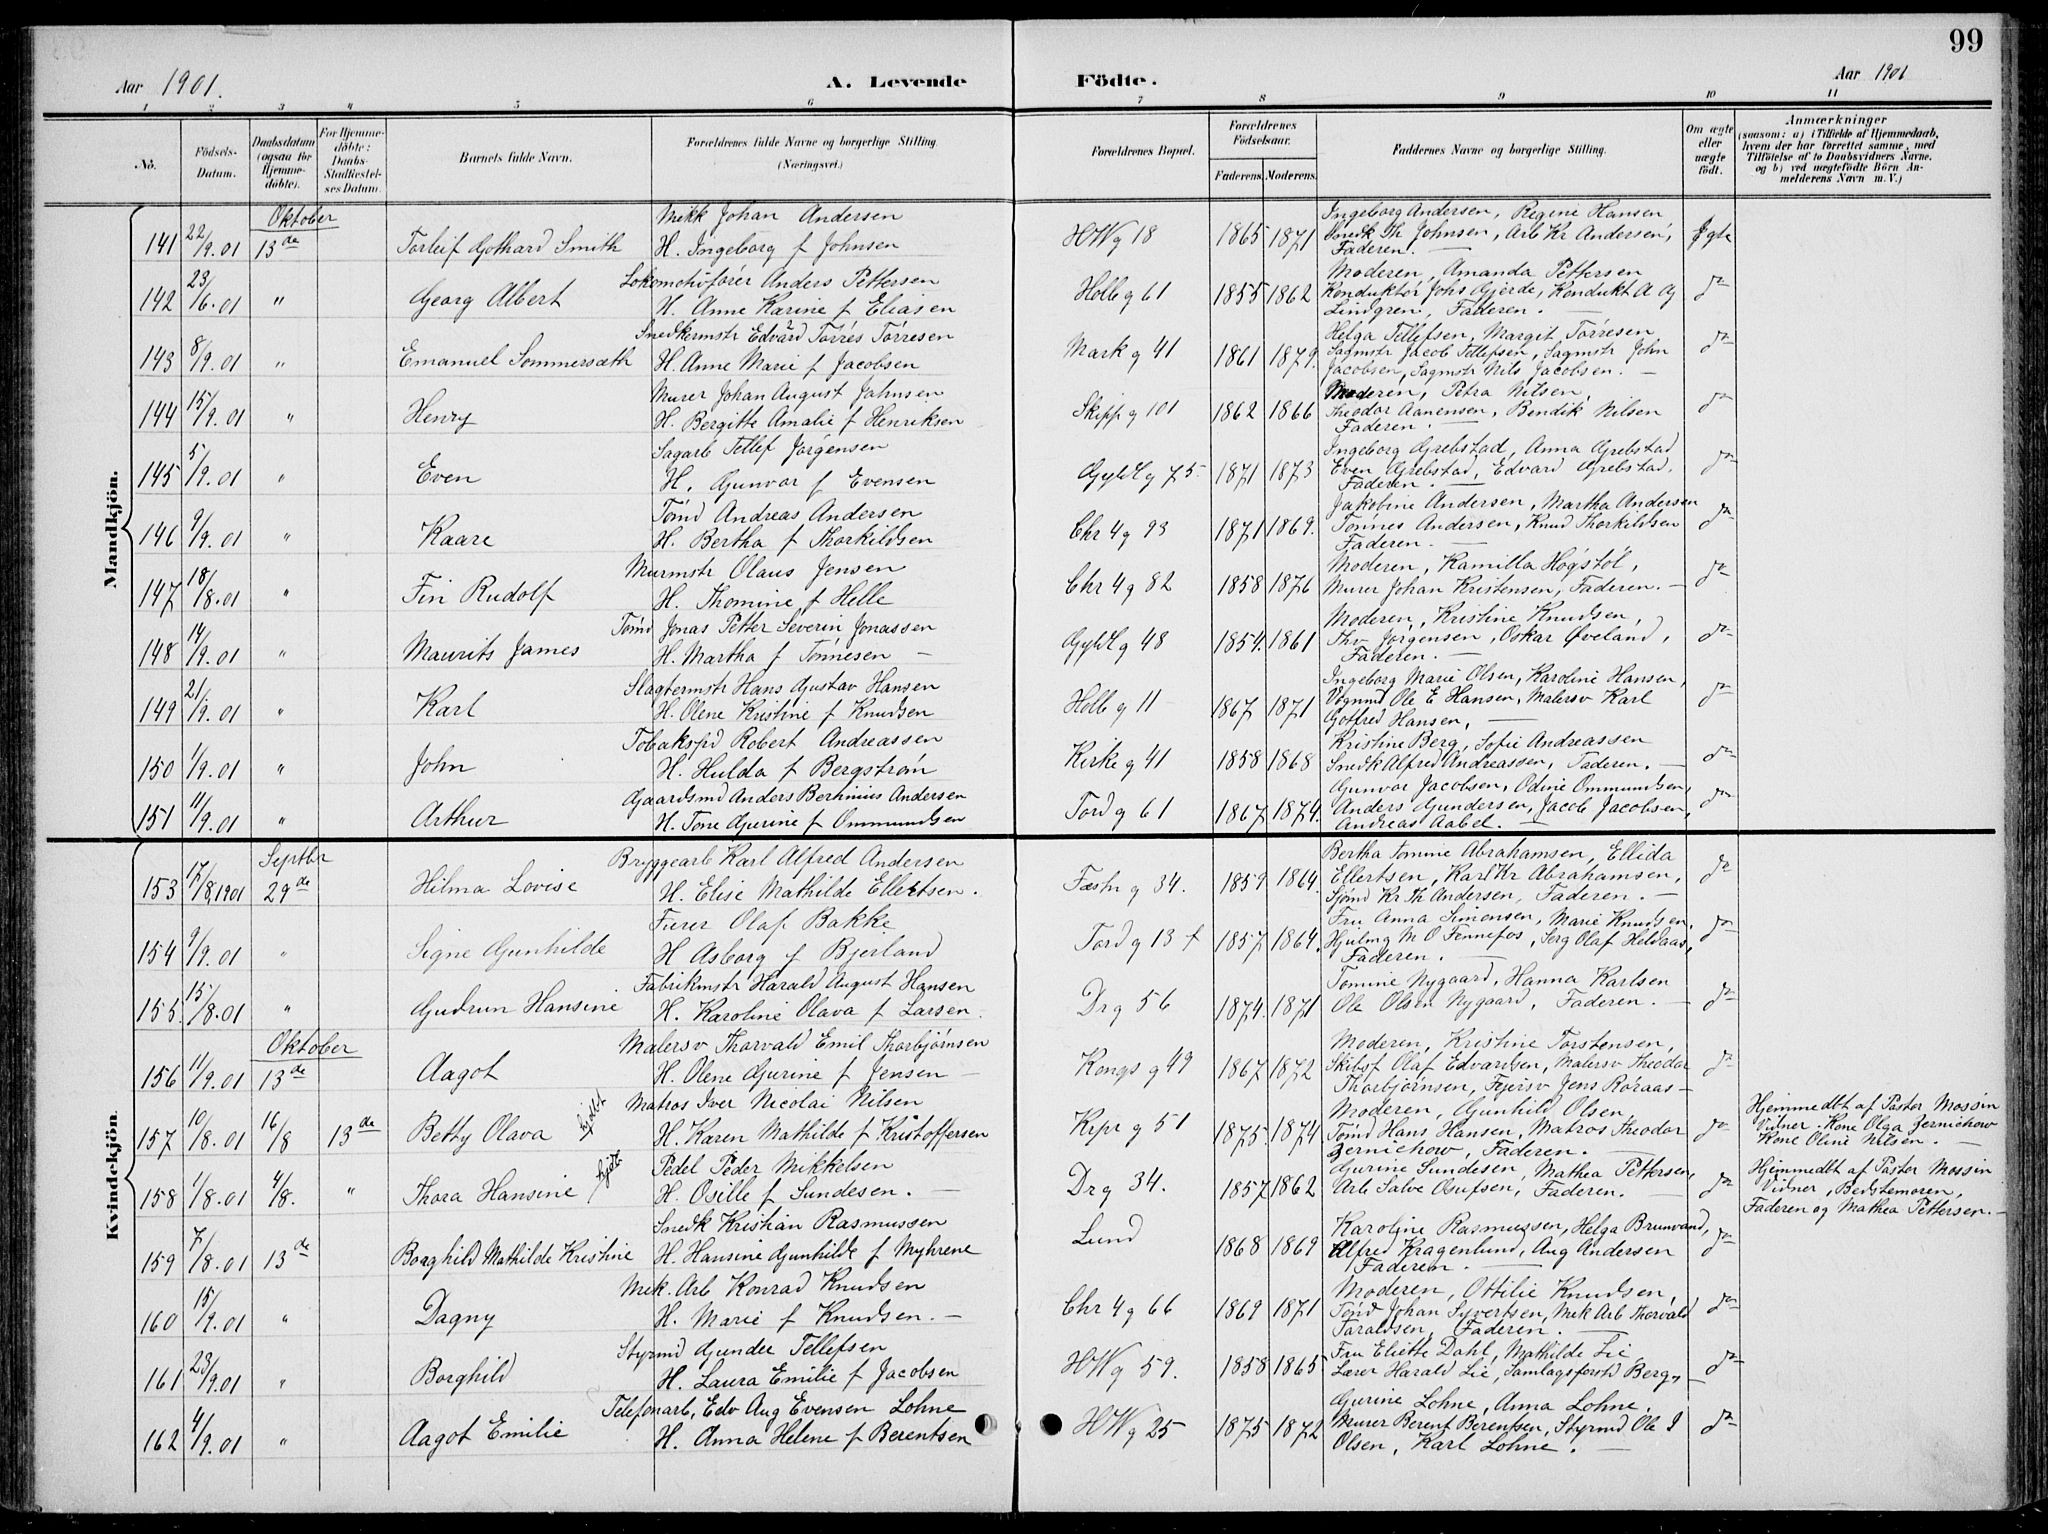 99
Aar 1901. A. Levende Födte. Aar 1901
1 2 3 4 5 6 7 8 9 10 11
No.
Födsels-Datum.
Daabsdatum (ogsaa for Hjemmedöbte).
For Hjemmedöbte: Daabs-Stadfæstelses Datum.
Barnets fulde Navn.
Forældrenes fulde Navne og borgerlige Stilling (Næringsvei.)
Forældrenes Bopæl.
Forældrenes Födselsaar.
Faderens. Moderens.
Faddernes Navne og borgerlige Stilling.
Om ægte eller uægte födt.
Anmærkninger
(saasom: a) i Tilfælde af Hjemmedaab, hvem der har forrettet samme, med Tilföielse af to Daabsvidners Navne, og b) ved uægtefödte Börn Anmelderens Navn m. V.)
Mandkjön.
Oktober
Mekk Johan Andersen Ingeborg Andersen, Regine Hansen
141 22/9.01 13de Torleif Gothard Smith H. Ingeborg f Johnsen HWg 18 1865 1871 Snedk Th Johnsen, Arb Kr Andersen, Ægte
Faderen. —
Lokomotivfører Anders Pettersen Moderen, Amanda Pettersen
142 23/6.01 " Georg Albert H. Anne Karine f Eliasen Holb g 61 1855 1862 Konduktør Johs Gjerde, Kondukt A Og do
Lindgren, Faderen. —
Snedkermstr Edvard Tørres Tørresen Helga Tellefsen, Margit Tørresen
143 8/9.01 " Emanuel Sommersæth H. Anne Marie f Jacobsen Mark g 41 1861 1879. Sagmstr Jacob Tellefsen, Sagmstr John do
Jacobsen, Sagmstr Nils Jacobsen. —
Murer Johan August Johnsen Moderen, Petra Nilsen,
144 15/9.01 " Henry H. Bergitte Amalie f Henriksen Skipp g 101 1862 1866 Theodor Aanensen, Bendik Nilsen do
Faderen. —
Sagarb Tellef Jørgensen Ingeborg Grebstad, Anna Grebstad
145 5/9.01 " Even H. Gunvor f Evensen Gyldl g 75 1871 1873 Even Grebstad, Edvard Grebstad, do
Faderen. —
Tømd Andreas Andersen Jakobine Andersen, Martha Andersen
146 9/9.01 " Kaare H. Bertha f Thorkildsen Chr 4 g 93 1871 1869. Tønnes Andersen, Knud Thorkildsen do
Faderen. —
Murmstr Olaus Jensen Moderen, Kamilla Høgstøl,
147 18/8.01 " Fin Rudolf H. Thomine f Helle Chr 4 g 82 1858 1876 Murer Johan Kristensen, Faderen. — do
Tømd Jonas Petter Severin Jonassen Moderen, Kristine Knudsen,
148 14/9.01 " Maurits James H. Martha f Tønnesen — Gyldl g 48 1854. 1861 Thv Jørgensen, Oskar Øveland, do
Faderen. —
Slagtermstr Hans Gustav Hansen Ingeborg Marie Olsen, Karoline Hansen,
149 21/9.01 " Karl H. Olene Kristine f Knudsen Holb g 11 1867 1871 Vognmd Ole E Hansen, Malersv Karl do
Gotfred Hansen, —
Tobaksfd Robert Andreassen Kristine Berg, Sofie Andreassen
150 1/9.01 " John H. Hulda f Bergstrøm Kirke g 41 1858 1868 Snedk Alfred Andreassen, Faderen. — do
Gaardsmd Anders Berhinius Andersen Gunvor Jacobsen, Odine Ommundsen,
151 11/9.01 " Arthur H. Tone Gurine f Ommundsen Tord g 61 1867 1874. Anders Gundersen, Jacob Jacobsen, do
Andreas Aabel. —
Kvindekjön.
Septbr
Bryggearb Karl Alfred Andersen Bertha Tomine Abrahamsen, Ellida
153 17/8.1901 29de Hilma Lovise H. Elise Mathilde Ellertsen. Fæstn g 34. 1859 1864. Ellertsen, Karl Kr Abrahamsen, do
Sjømd Kr Th Andersen, Faderen. —
Furer Olaf Bakke Fru Anna Simonsen, Marie Knudsen,
154 9/9.01 " Signe Gunhilde H Asborg f Bjerland Tord g 13 1857 1864. Hjulmg M O Fennefos, Serg Olaf Heldaas, do
Faderen. —
Fabrikmstr Harald August Hansen Tomine Nygaard, Hanna Karlsen
155. 15/8.01 " Gudrun Hansine H. Karoline Olava f Larsen. Drg 56 1874. 1871 Ole Olsen Nygaard, Faderen. — do
Oktober
Malersv Thorvald Emil Thorbjørnsen Moderen, Kristine Torstensen,
156 11/9.01 13de Aagot H. Olene Gurine f Jensen — Kongs g 49 1867 1872 Skibsf Olaf Edvardsen, Malersv Theodor do
Thorbjørnsen, Fejersv Jens Roraas —
Matros Iver Nicolai Nilsen Moderen, Gunhild Olsen, Hjemmedbt af Pastor Mossin
157 10/8.01 16/8 13de Betty Olava hjdbt H. Karen Mathilde f Kristoffersen Krpr g 51 1875 1874 Tømd Hans Hansen, Matros Theodor do Vidner. Kone Olga Zernichow
Zernichow, Faderen. — Kone Oline Nilsen. —
Pedel Peder Mikkelsen Gurine Sundesen, Mathea Pettersen, Hjemmedbt af Pastor Mossin
158 1/8.01 4/8. " Thora Hansine hjdbt H. Osille f Sundesen. — Drg 34. 1857 1862 Arb Salve Osufsen, Faderen. — do Vidner, Bedstemoren,
Faderen og Mathea Pettersen. —
Snedk Kristian Rasmussen Karoline Rasmussen, Helga Brunvand,
159 7/8.01 13de Borghild Mathilde Kristine H. Hansine Gunhilde f Myhrene Lund 1868 1869 Alfred Kragenlund, Aug Andersen do
Faderen. —
Mek. Arb Konrad Knudsen Moderen, Ottilie Knudsen,
160 15/9.01 " Dagny H. Marie f Knudsen. — Chr 4 g 66 1869 1871 Tømd Johan Syvertsen, Mek Arb Thorvald do
Taraldsen, Faderen. —
Styrmd Gunder Tellefsen Fru Eliette Dahl, Mathilde Lie
161 23/9.01 " Borghild H. Laura Emilie f Jacobsen HWg 59. 1858 1865 Lærer Harald Lie, Samlagsforst Berg, — do
Telefonarb, Edv Aug Evensen Lohne Gurine Lohne, Anna Lohne,
162 4/9.01 " Aagot Emilie H. Anna Helene f Berentsen HWg 25 1875 1872 Murer Berent Berentsen, Styrmd Ole I do
Olsen, Karl Lohne. —